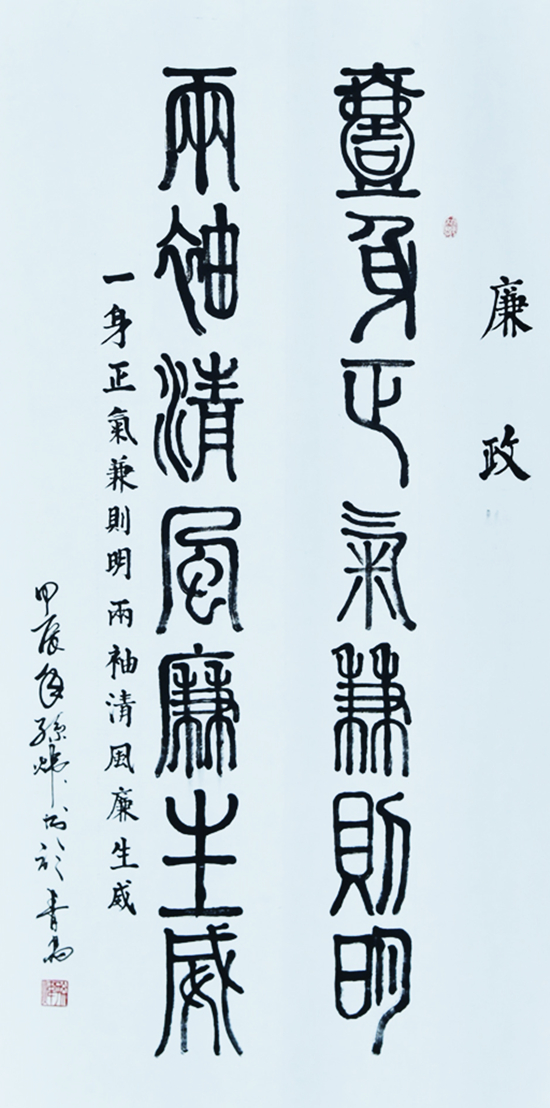 廉政
壹身正氣兼則明
兩袖清風廉生威
一身正氣兼則明兩袖清風廉生威
甲辰年孫煒书於青島